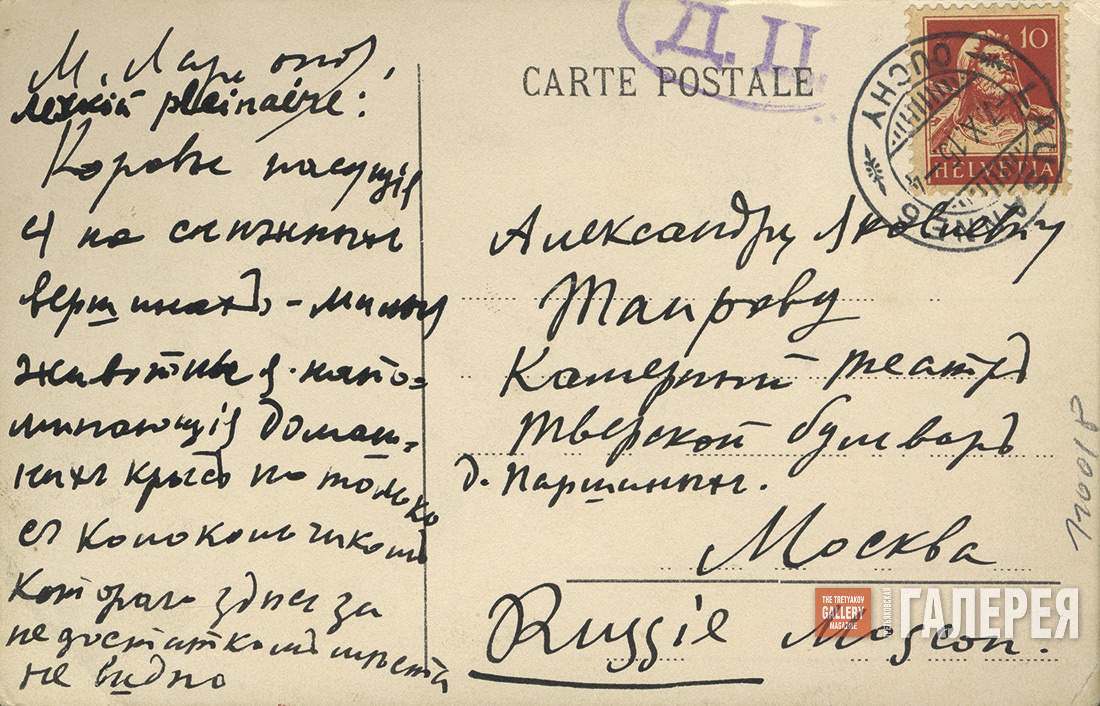 М. Ларионов,
легкiй pleinaire:
Коровы пасущiя
ся на снѣжныхъ
вершинахъ – милыя
животныя напо=
минающiя домаш=
нихъ крысъ но только
съ колокольчикомъ
котораго здѣсь за
недостаткомъ мѣста
не видно
Д.Ц.
CARTE POSTALE
10
HELVETIA
LAUSANNE
OUCHY
Александру Яковлевичу
Таирову
Камерный театръ
Тверской бульваръ
д. Паршиныхъ.
Москва
Russie Moscou.
THE TRETYAKOV
GALLERY
MAGAZINE
ТРЕТЬЯКОВСКАЯ
ГАЛЕРЕЯ